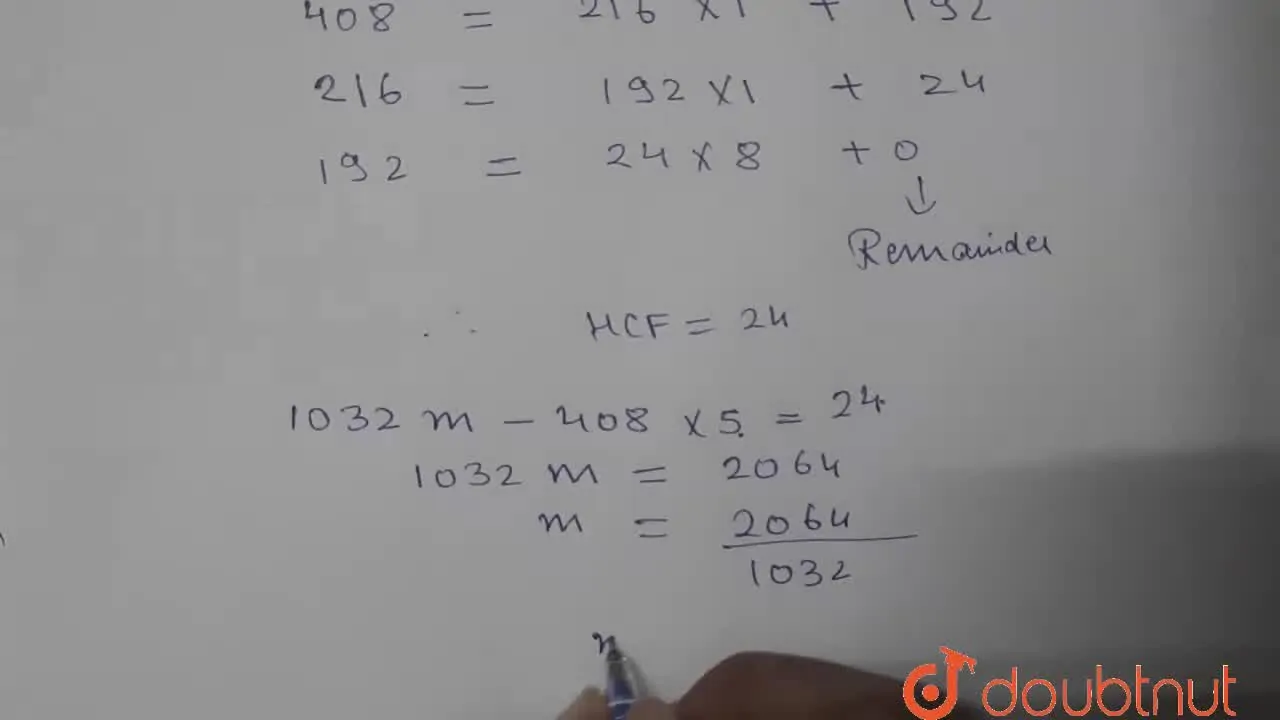 408 = 216 × 1 + 192
216 = 192 × 1 + 24
192 = 24 × 8 + 0
↓
Remainder
∴ HCF = 24
1032 m - 408 × 5. = 24
1032 m = 2064
m = 2064
1032
doubtnut